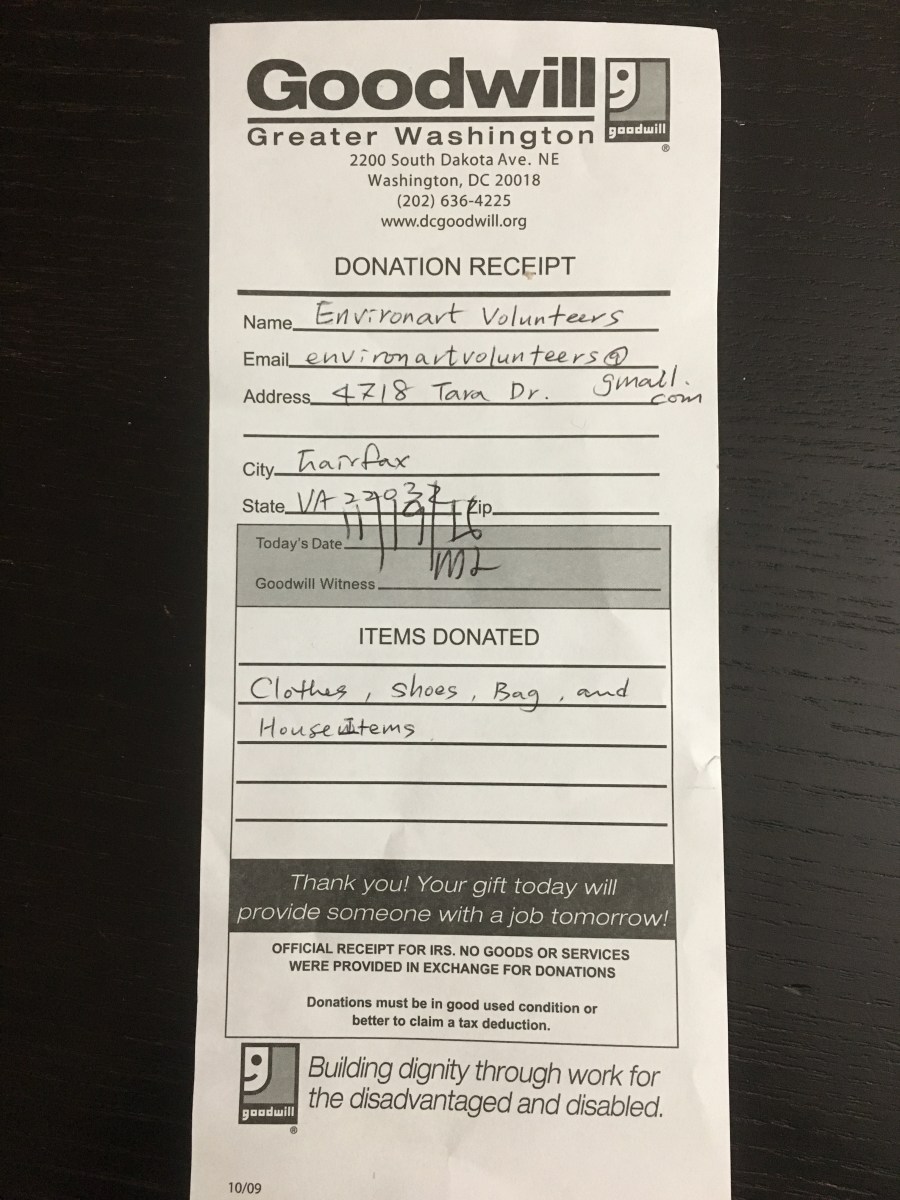 Goodwill
goodwill
®
Greater Washington
2200 South Dakota Ave. NE
Washington, DC 20018
(202) 636-4225
www.dcgoodwill.org
DONATION RECEIPT
Name Environart Volunteers
Email environartvolunteers@gmail.com
Address 4718 Tara Dr.
City Fairfax
State VA 22032 Zip
Today's Date 11/19/16
Goodwill Witness ML
ITEMS DONATED
Clothes, Shoes, Bag, and
House Items
Thank you! Your gift today will
provide someone with a job tomorrow!
OFFICIAL RECEIPT FOR IRS. NO GOODS OR SERVICES
WERE PROVIDED IN EXCHANGE FOR DONATIONS
Donations must be in good used condition or
better to claim a tax deduction.
goodwill
®
Building dignity through work for
the disadvantaged and disabled.
10/09